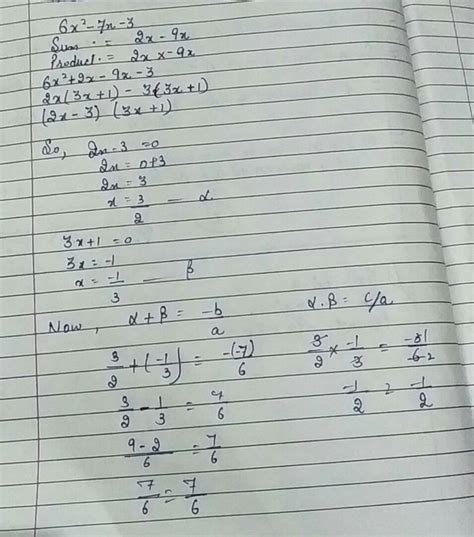 6x² - 7x - 3
Sum = 2x - 9x
Product = 2x x - 9x
6x² + 2x - 9x - 3
2x(3x + 1) - 3(3x + 1)
(2x - 3) (3x + 1)
So, 2x - 3 = 0
2x = 0+3
2x = 3
x = 3/2 — α
3x + 1 = 0
3x = -1
x = -1/3 — β
Now, α + β = -b/a
3/2 + (-1/3) = -(-7)/6
3/2 - 1/3 = 7/6
9 - 2/6 = 7/6
7/6 = 7/6
α . β = c/a
3/2 × -1/3 = -31/6 2
-1/2 = -1/2